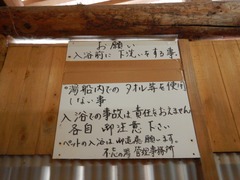 お願い
・入浴前に下洗いをする事、
・湯船内でのタオル等を使用
しない事
入浴での事故は責任をおえません
各自御注意下さい
・ペットの入浴は御遠慮願います。
不老の湯 管理事務所